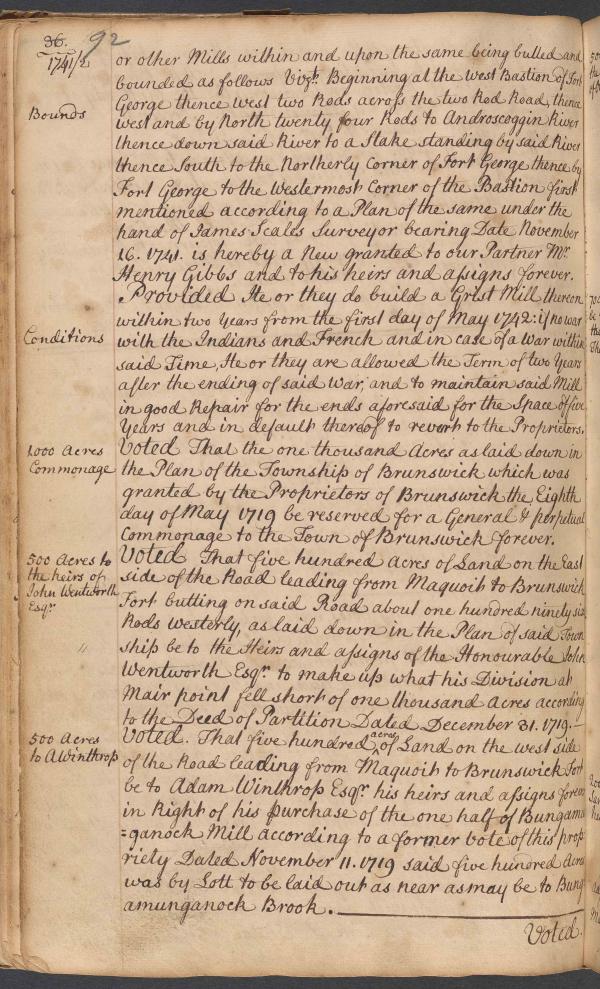 36. 92
1741/2
or other Mills within and upon the same being butted and
bounded as follows Vizt. Beginning at the west Bastion of Fort
George thence west two Rods across the two Rod Road, thence
Bounds
west and by North twenty four Rods to Androscoggin River
thence down said River to a Stake standing by said River
thence South to the Northerly Corner of Fort George thence by
Fort George to the Westermost Corner of the Bastion first
mentioned according to a Plan of the same under the
hand of James Scales Surveyor bearing Date November
16. 1741. is hereby a New granted to our Partner Mr.
Henry Gibbs and to his heirs and assigns forever.
Provided He or they do build a Grist Mill thereon
within two Years from the first day of May 1742: if no war
Conditions
with the Indians and French and in case of a War within
said Time, He or they are allowed the Term of two Years
after the ending of said War, and to maintain said Mill
in good Repair for the ends aforesaid for the Space of five
Years and in default thereof to revert to the Proprietors.
1000 Acres
Commonage
Voted That the one thousand Acres as laid down in
the Plan of the Township of Brunswick which was
granted by the Proprietors of Brunswick the Eighth
day of May 1719 be reserved for a General & perpetual
Commonage to the Town of Brunswick forever.
500 Acres to
the heirs of
John Wentworth
Esqr.
Voted That five hundred Acres of Land on the East
side of the Road leading from Maquoit to Brunswick
Fort butting on said Road about one hundred ninety six
Rods westerly, as laid down in the Plan of said Town
"
ship be to the Heirs and assigns of the Honourable John
Wentworth Esqr. to make up what his Division at
Mair point fell short of one thousand Acres according
to the Deed of Partition Dated December 31. 1719.-
500 Acres
to A Winthrop
Voted. That five hundred acres of Land on the west side
of the Road leading from Maquoit to Brunswick Fort
be to Adam Winthrop Esqr. his heirs and assigns forever
in Right of his Purchase of the one half of Bungamu
=ganock Mill according to a former vote of this prop
riety Dated November 11. 1719 said five hundred Acres
was by Lott to be laid out as near as may be to Bung
amunganock Brook.
Voted.